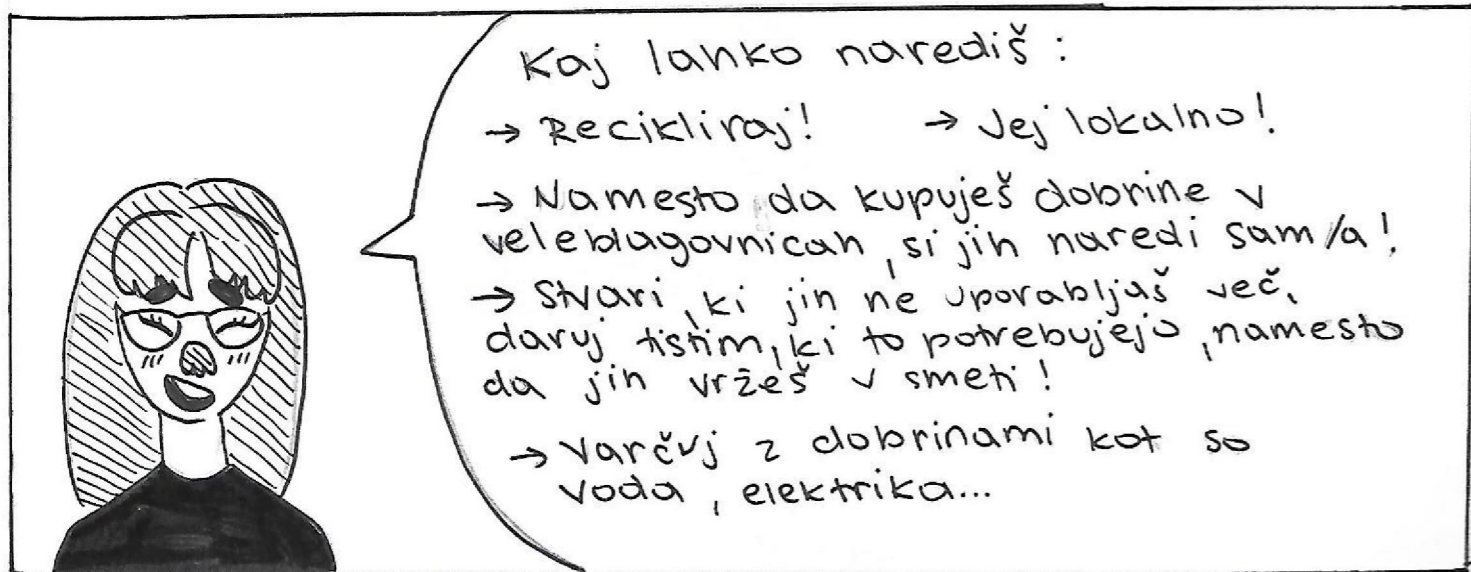 Kaj lahko narediš :
→ Recikliraj! → Jej lokalno!
→ Namesto da kupuješ dobrine v
veleblagovnicah, si jih naredi sam/a!
→ Stvari, ki jih ne uporabljaš več,
daruj tistim, ki to potrebujejo, namesto
da jih vržeš v smeti!
→ Varčuj z dobrinami kot so
voda, elektrika...